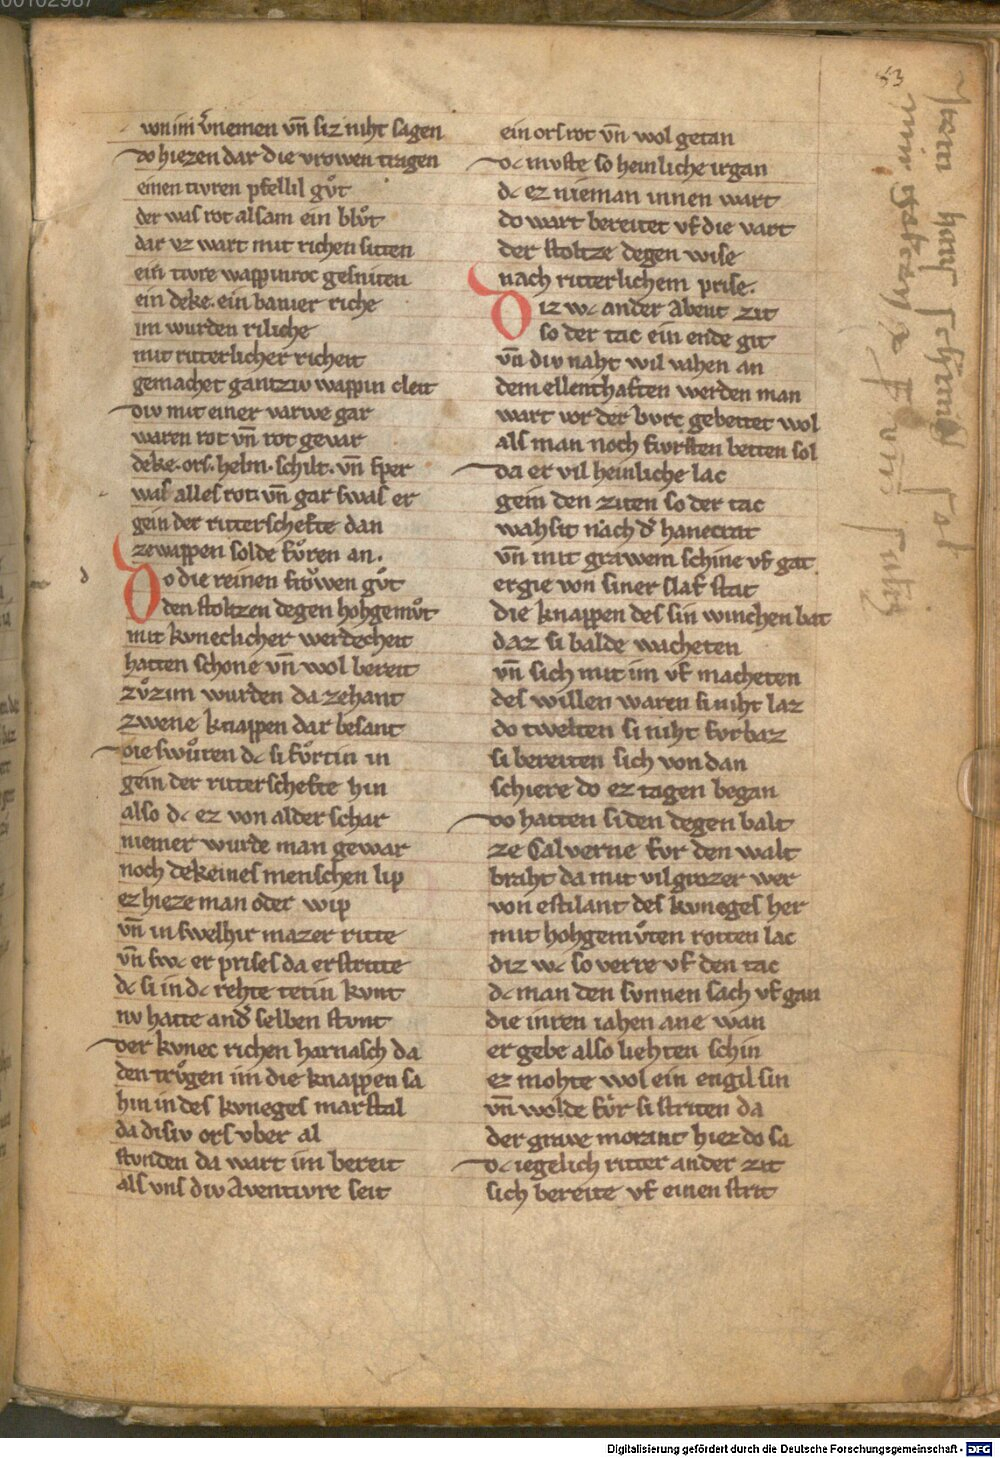 von im v͛nemen vn̄ siz niht sagen
do hiezen dar die vrowen tragen
einen tivren pfellil gv̊t
der was rot alsam ein blv̊t
dar vz wart mit richen sitten
ein tivre wappinroc gesniten
ein deke. ein banier riche
im wurden riliche
mit ritterlicher richeit
gemachet gantziv wappin cleit
div mit einer varwe gar
waren rot vn̄ rot gevar
deke. ors. helm. schilt. vn̄ sper
was alles rot. vn̄ gar swas er
gein der ritterschefte dan
zewappen solde fv̊ren an.
Do die reinen frŏwen gv̊t
den stoltzen degen hohgemv̊t
mit kvneclicher werdecheit
hatten schone vn̄ wol bereit
zv̊zim wurden da zehant
zwene knappen dar besant
die swv̊ren dc si fv̊rtin in
gein der ritterschefte hin
also dc ez von alder schar
niemer wurde man gewar
noch dekeines menschen lip
ez hieze man oder wip
vn̄ in swelhir mazer ritte
vn̄ swc er prises da erstritte
dc si in dc rehte tetin kvnt
nv hatte and͛ selben stvnt
der kvnec richen harnasch da
den trv̊gen im die knappen sa
hin in des kvneges marstal
da disiv ors vber al
stvnden da wart im bereit
als vns div Aventivre seit
ein ors rot vn̄ wol getan
dc mvste so heinliche irgan
dc ez nieman innen wart
do wart bereitet vf die vart
der stoltze degen wise
nach ritterlichem prise.
Diz wc ander Abent zit
so der tac ein ende git
vn̄ div naht wil vahen an
dem ellenthaften werden man
wart vor der bvrc gebettet wol
als man noch fvrsten betten sol
da er vil heinliche lac
gein den ziten so der tac
wahsit nach d͛ hanecrat
vn̄ mit grawem schine vf gat
ergie von siner slaf stat
die knappen des sin winchen bat
daz si balde wacheten
vn̄ sich mit im vf macheten
des willen waren si niht laz
do twelten si niht fvrbaz
si bereiten sich von dan
schiere do ez tagen began
do hatten si den degen balt
ze Calverne fvr den walt
braht da mit vil grozer wer
von estilant des kvneges her
mit hohgemv̊ten rotten lac
diz wc so verre vf den tac
dc man den svnnen sach vf gan
die in ren iahen ane wan
er gebe also liehten schin
ez mohte wol ein engil sin
vn̄ wolde fv̊r si striten da
der grave morant hiez do sa
dc iegelich ritter ander zit
sich bereite vf einen strit
53
Item hans
Digitalisierung gefördert durch die Deutsche Forschungsgemeinschaft - DFG